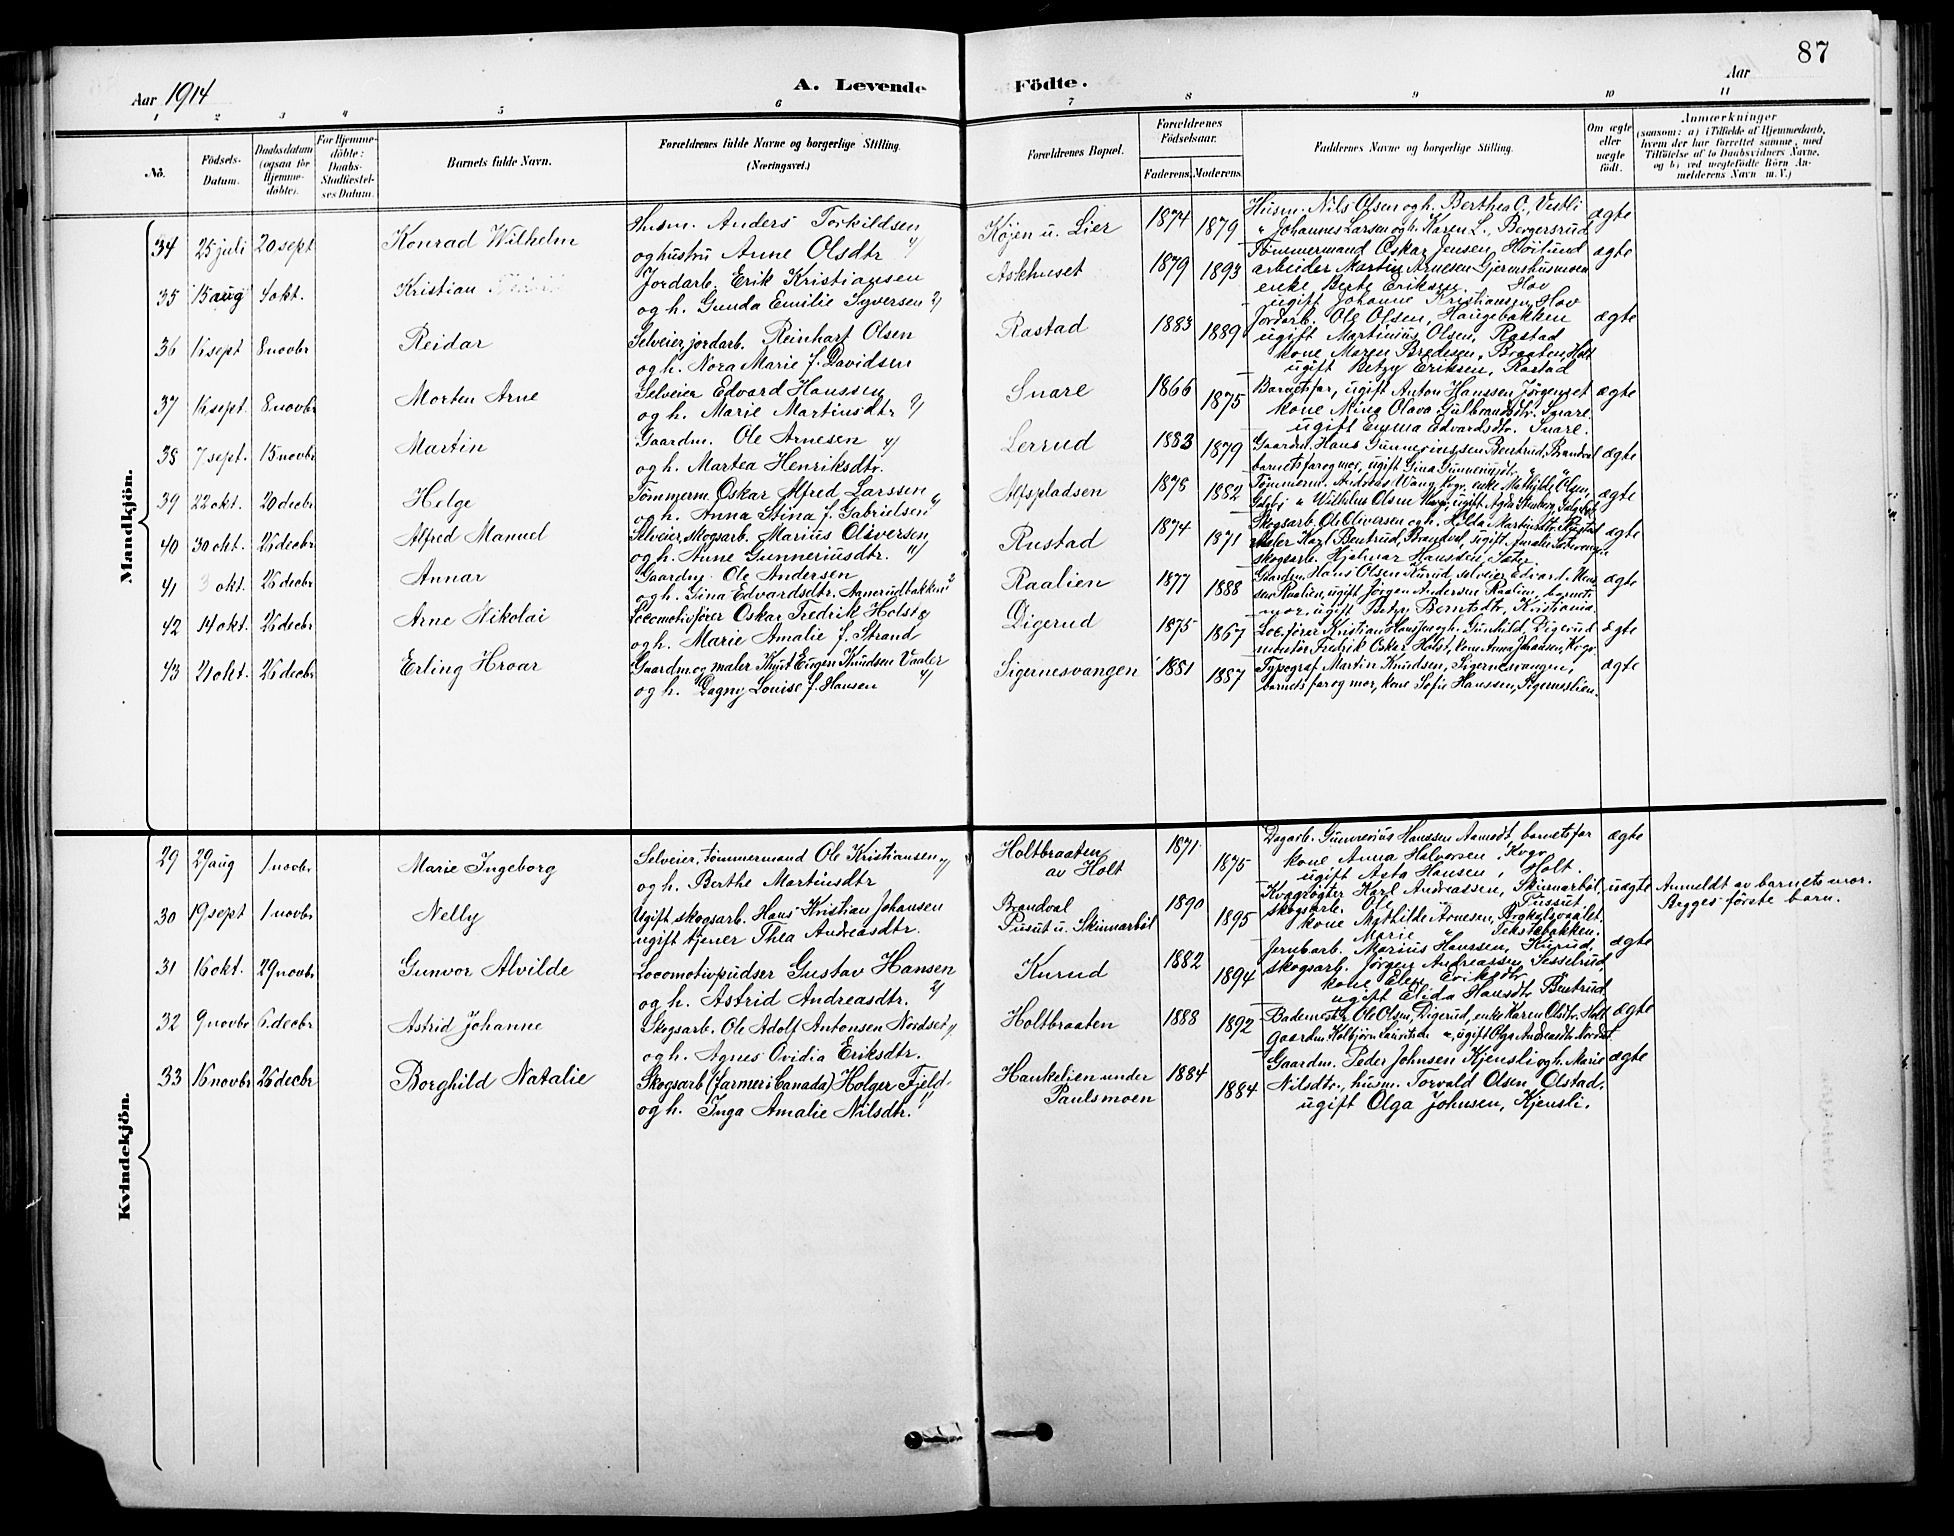 87
Aar 1914
A. Levende Födte.
Aar
1 2 3 4 5 6 7 8 9 10 11
No.
Födsels-Datum.
Daabsdatum (ogsaa för Hjemme-döbte).
For Hjemme-döbte: Daabs-Stadfæstel-ses Datum.
Barnets fulde Navn.
Forældrenes fulde Navne og borgerlige Stilling.
(Næringsvei.)
Forældrenes Bopæl.
Forældrenes Födselsaar.
Faderens. Moderens.
Faddernes Navne og borgerlige Stilling.
Om ægte eller uægte födt.
Anmærkninger
(saasom: a) i Tilfælde af Hjemmedaab,
hvem der har forrettet samme, med
Tilföielse af to Daabsvidners Navne,
og b) ved uægtefödte Börn An-
melderens Navn m. V.)
Mandkjön.
34 25 juli 20 sept Konrad Wilhelm
Husm. Anders Torkildsen
og hustru Anne Olsdtr
Köjen u. Lier 1874 1879
Husm. Nils Olsen og h. Berthea O., Vestli
" Johannes Larsen og h. Karen L., Bergersrud
ægte
35 15 aug 4 okt. Kristian
Jordarb. Erik Kristiansen
og h. Gunda Emilie Syversen
Askhuset 1879 1893
Tömmermand Oskar Jensen, Höilund
arbeider Martin Arnesen Gjermshusmoen
enke Berte Eriksen. Hov
ugift Johanne Kristiansen, Hov
ægte
36 16 sept 8 novbr Reidar
Selveier, jordarb. Reinhart Olsen
og h. Nora Marie f. Davidsen
Rastad 1883 1889
Jordarb. Ole Olsen, Haugebakken
ugift Martinius Olsen, Rastad
kone Maren Bredesen, Braaten, Holt
ugift Betzy Eriksen, Rastad
ægte
37 16 sept. 8 novbr Morten Arne
Selveier Edvard Hanssen
og h. Marie Martinsdtr
Snare 1866 1875
Barnets far, ugift Anton Hanssen Jörgenset
kone Mina Olava Gulbrandsdtr. Snare
ugift Emma Edvardsdtr. Snare.
ægte
38 7 sept. 15 novbr Martin
Gaardm. Ole Arnesen
og h. Martea Henriksdtr.
Lerrud 1883 1879
Gaardm. Hans Gunneriussen Bentrud, Brandval
barnets far og mor, ugift Gina Gunneriusdtr.
ægte
39 22 okt. 20 decbr Helge
Tömmerm. Oskar Alfred Larssen
og h. Anna Stina f. Gabrielsen
Alfspladsen 1878 1882
Tömmerm. Andreas Wang Kgv., enke Mathilde Olsen,
ægte
40 30 okt. 26 decbr Alfred Manuel
Selveier, skogsarb. Marius Oliversen
og h. Anne Gunneriusdtr.
Rustad 1874 1871
Skogsarb. Ole Oliversen og h. Hilda Martinsdtr. Rustad
maler Karl Bentrud, Brandval, ugift Amalie
skogsarb. Hjalmar Hansen,
ægte
41 3 okt. 26 decbr Annar
Gaardm. Ole Andersen
og h. Gina Edvardsdtr. Aanerudbakken
Raalien 1877 1888
Gaardm. Hans Olsen Kurud, selveier Edvard Han-
sen Raalien, ugift Jörgen Andersen Raalien, barnets
mor, ugift Betzy Berntsdtr, Kristiania.
ægte
42 14 okt. 26 decbr Arne Nikolai
Locomotivförer Oskar Fredrik Holst
og h. Marie Amalie f. Strand
Digerud 1875 1867
Loc.förer Kristian Hanssen og h. Gunhild, Digerud
montör Fredrik Oskar Holst, kone Anna Johansen, Kgv.
ægte
43 21 okt. 26 decbr Erling Hroar
Gaardm. og maler Knut Eugen Knudsen Vaaler
og h. Dagny Louise f. Hansen
Sigernesvangen 1881 1887
Typograf Martin Knudsen, Sigernesvangen,
barnets far og mor, kone Sofie Hanssen, Sigerneslien.
ægte
Kvindekjön.
29 29 aug 1 novbr Marie Ingeborg
Selveier, tömmermand Ole Kristiansen
og h. Berthe Martinsdtr
Holtbraaten
av Holt
1871 1875
Dagarb. Gunnerius Hanssen Aamodt, barnets far
kone Anna Halversen, Kgv.
ugift Asta Hansen, Holt.
ægte
30 19 sept 1 novbr Nelly
Ugift skogsarb. Hans Kristian Johansen
ugift tjener Thea Andreasdtr.
Brandval
Pusut u. Skinnarböl
1890 1895
Kvægrögter Karl Andreassen, Skinnarböl,
skogsarb. Ole " Pusut,
kone Mathilde Arnesen,
Marie "
uægte
Anmeldt av barnets mor.
Begges förste barn.
31 16 okt. 29 novbr Gunvor Alvilde
Locomotivpudser Gustav Hansen
og h. Astrid Andreasdtr.
Kurud 1882 1894
Jernbarb. Marius Hanssen, Kurud,
skogsarb. Jörgen Andreassen, Sesselrud,
kone Elen Eriksdtr
ugift Elida Hansdtr Bentrud
ægte
32 9 novbr 6 decbr Astrid Johanne
Skogsarb. Ole Adolf Antonsen Nordset
og h. Agnes Ovidia Eriksdtr.
Holtbraaten 1888 1892
Bademester Ole Olsen, Digerud, enke Karen Olsdtr. Holt
gaardm. Kolbjörn Lauritsen " , ugift Olga Andreasdtr Nordset
ægte
33 16 novbr 26 decbr Borghild Natalie
Skogsarb (farmer i Canada) Holger Fjeld
og h. Inga Amalie Nilsdtr.
Haukelien under
Paulsmoen
1884 1884
Gaardm. Peder Johnsen Kjensli og h. Marie
Nilsdtr., husm. Torvald Olsen Olstad,
ugift Olga Johnsen, Kjensli.
ægte